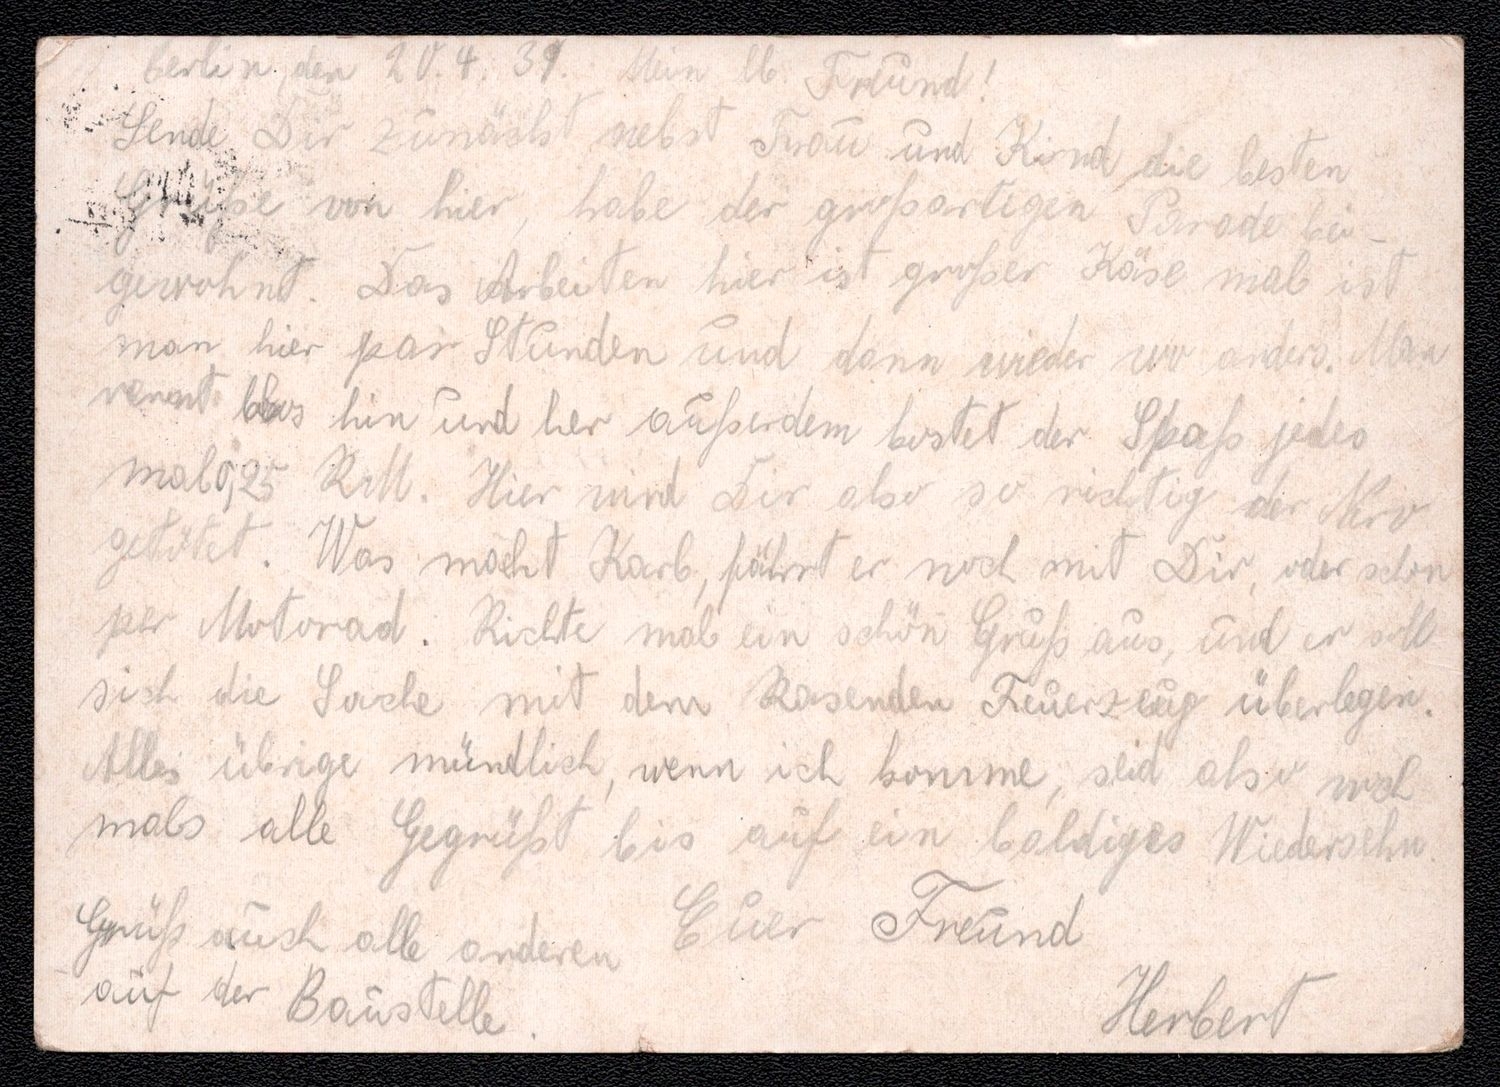 Berlin, den 20.4.39. Mein lb. Freund!
Sende Dir zunächst nebst Frau und Kind die besten
Grüße von hier, habe der großartigen Parade bei-
gewohnt. Das Arbeiten hier ist großer Käse mal ist
man hier paar Stunden und dann wieder wo anders. Man
rennt blos hin und her außerdem kostet der Spaß jedes
mal 0,25 RM. Hier wird Dir also so richtig der Nerv
getötet. Was macht Karb, fährt er noch mit Dir, oder schon
per Motorad. Richte mal ein schön Gruß aus, und er soll
sich die Sache mit dem Rasenden Feuerzeug überlegen.
Alles übrige mündlich, wenn ich komme, seid also noch
mals alle Gegrüßt bis auf ein baldiges Wiedersehn.
Euer Freund
Herbert
Grüß auch alle anderen
auf der Baustelle.